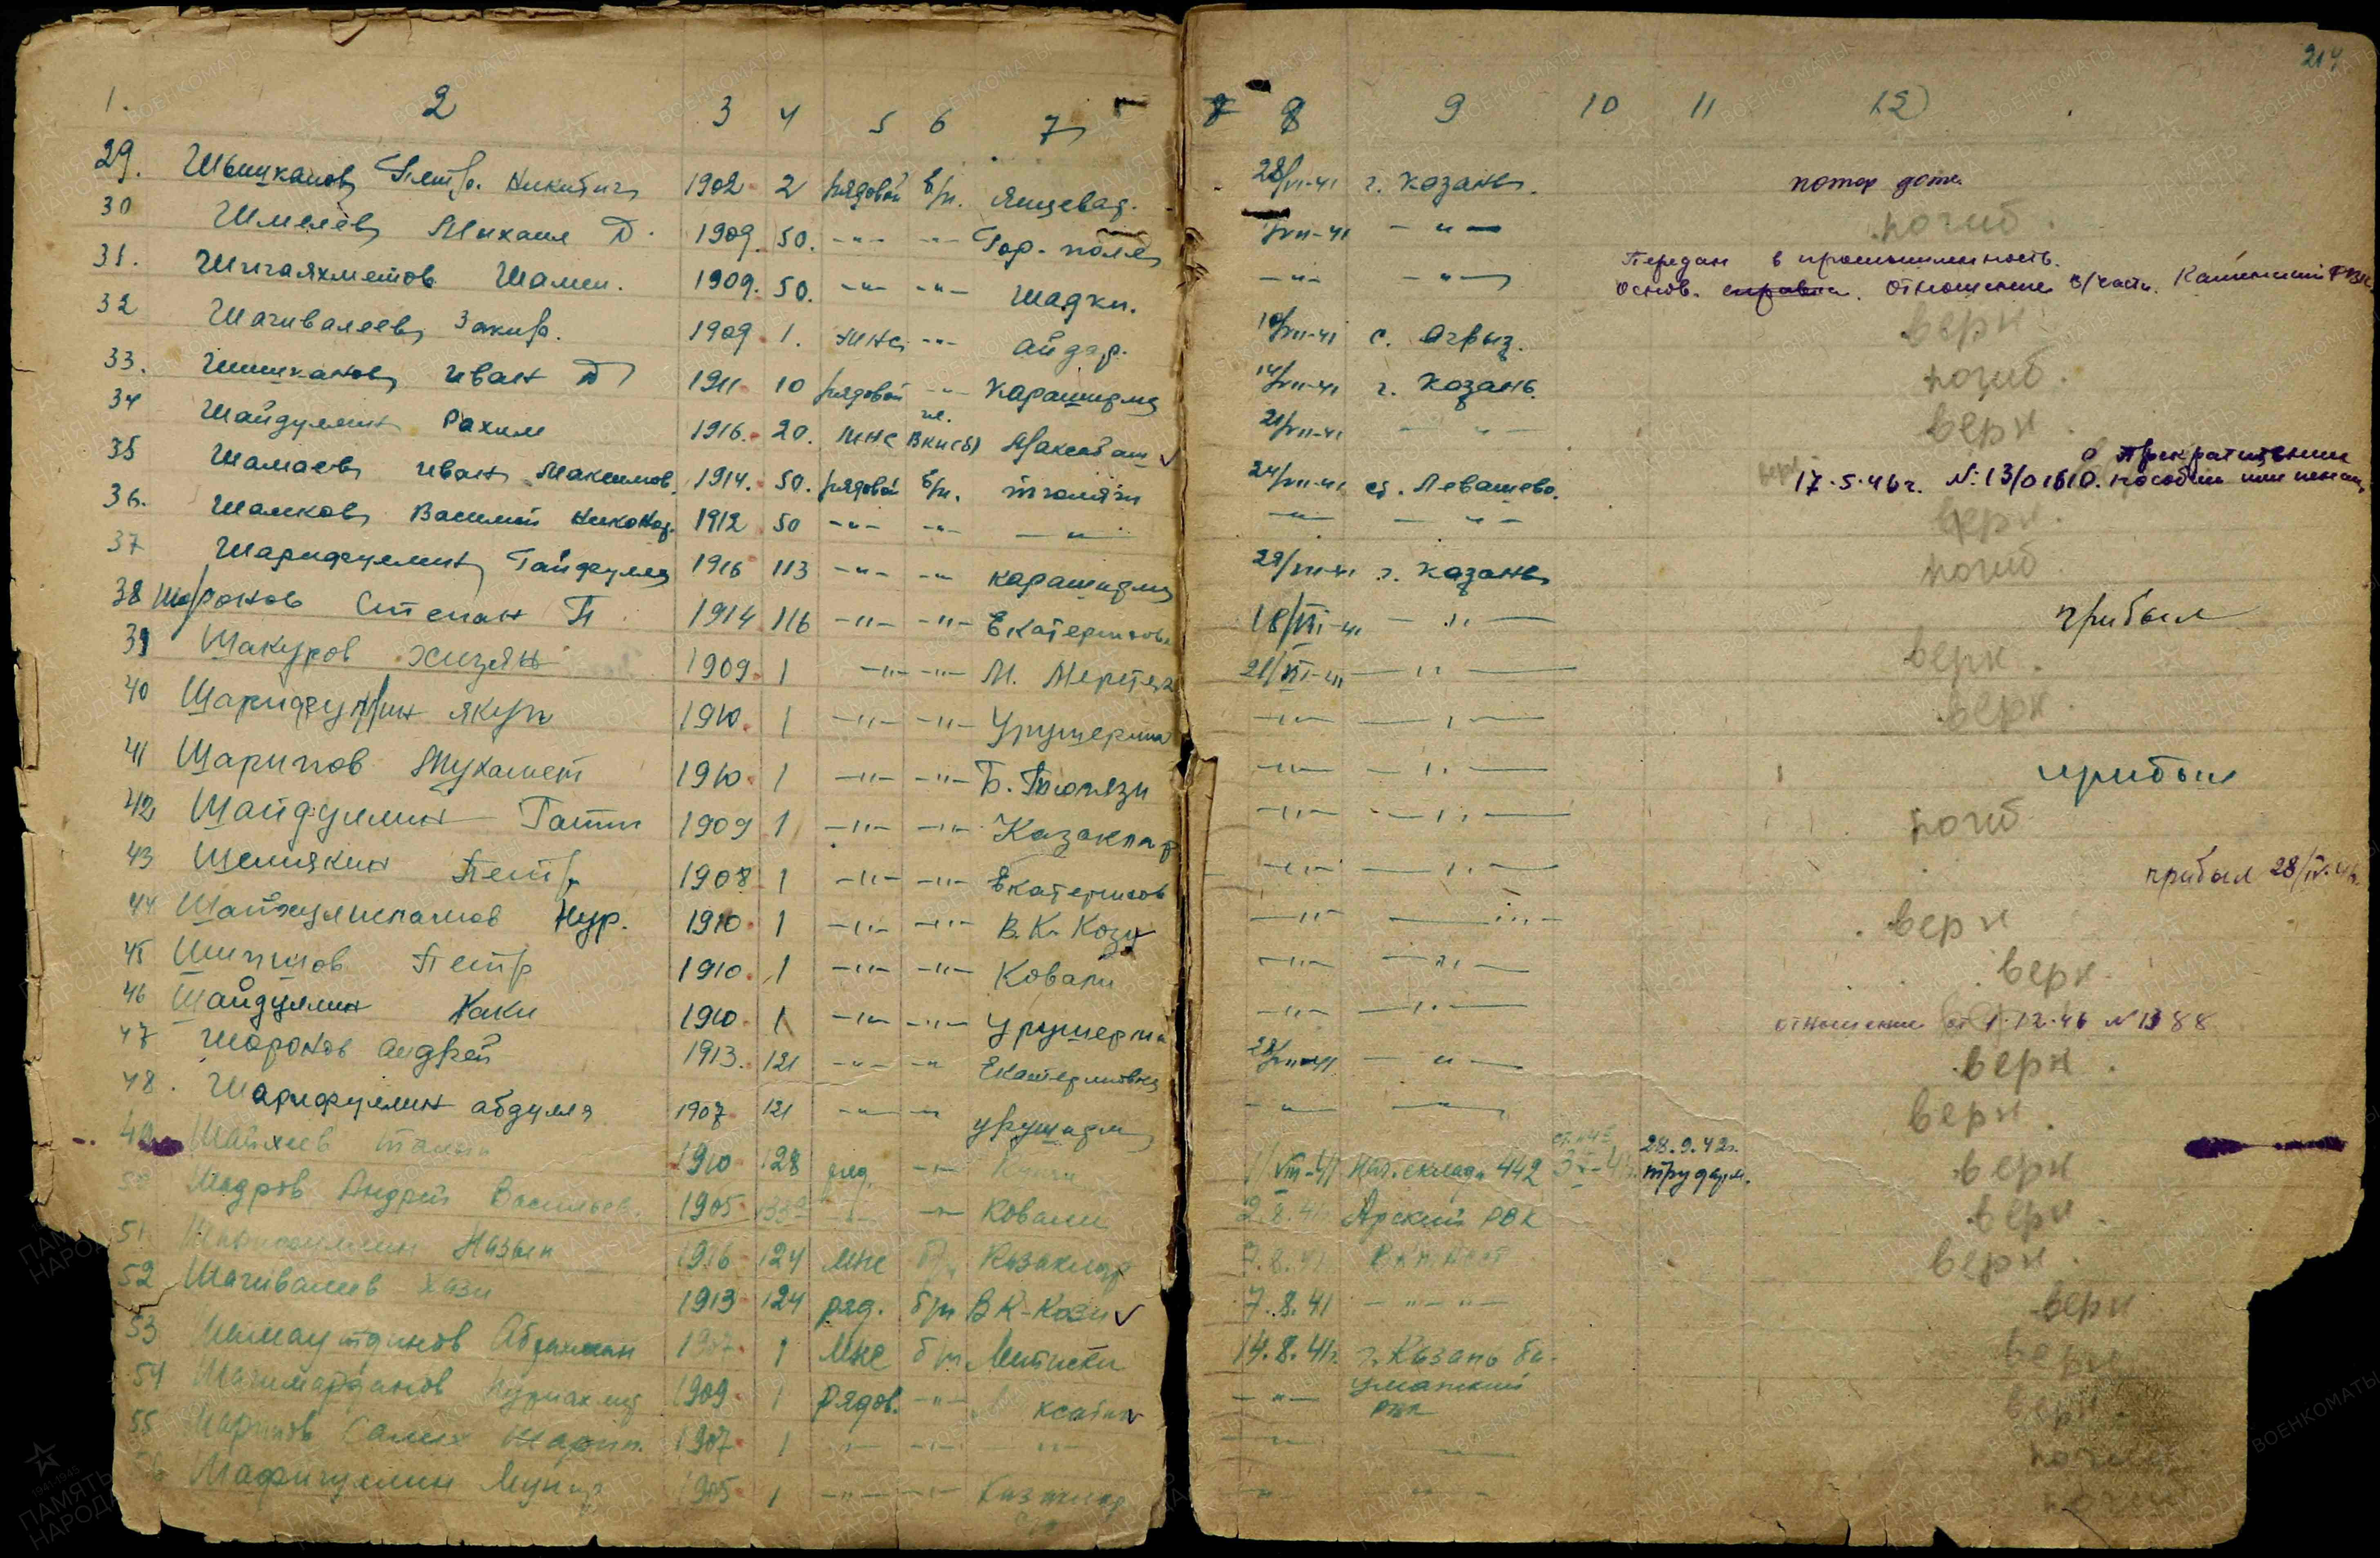 214
1. 2 3 4 5 6 7 8 9 10 11 12
29. Шышканов Петр. Никитич 1902 2 рядовой б/п. Янцевад. 28/VI-41 г. Казань. потор доте
30 Шмелев Михаил Д. 1909. 50. -"- -"- Гор. поле /VII-41 -"- погиб.
31. Шигаяхметов Шамси. 1909. 50. -"- -"- Шадки. -"- -"- Передан в промышленность.
Основ. справка. Отношение в/части. Каменский РВК
32 Шагивалеев Закир. 1909. 1. мнс -"- Айдар. 10/VII-41 с. Агрыз. верн
33. Шишканов Иван Д 1911 10 рядовой -"- Карашидма 14/VII-41 г. Казань. погиб.
34 Шайдуллин Рахим 1916. 20. мнс чл. ВКП(б) Максабаш 21/VII-41 -"- верн
35 Шамаев Иван Максимов. 1914. 50. рядовой б/п. Тюляти 24/VII-41 ст. Левашево. верн О Прекращении
17.5.46 г. №13/01610. пособии или пенсии
36. Шалков Василий Никонор. 1912 50 -"- -"- -"- -"- -"- верн.
37 Шарифуллин Гайфулла 1916 113 -"- -"- Карашидма 29/VII-41 г. Казань погиб
38 Шаронов Степан П 1914 116 -"- -"- Екатериновк 18/VII-41 -"- прибыл
39 Шакуров Хизян 1909. 1 -"- -"- М. Меретяк 21/VI-41 -"- верн.
40 Шарифуллин Якуп 1910. 1 -"- -"- Урушерма -"- -"- верн.
41 Шарипов Мухамет 1910. 1 -"- -"- Б. Тюлязи -"- -"- прибыл
42 Шайдуллин Гатти 1909 1 -"- -"- Казаклар -"- -"- погиб
43 Шемякин Петр 1908. 1 -"- -"- Екатеринов -"- -"- прибыл 28/IV.46
44 Шайхулисламов Нур. 1910. 1 -"- -"- В.К. Кози -"- -"- верн
45 Шипшов Петр 1910. 1 -"- -"- Ковали -"- -"- верн.
46 Шайдуллин Наки 1910. 1 -"- -"- Урушерма -"- -"- отношение от 1.12.46 №1388
47 Шоронов Андрей 1913. 121 -"- -"- Екатериновка 28/VII-41 -"- верн.
48. Шарифуллин Абдулла 1907. 121 -"- -"- Урушидм -"- -"- верн.
49 Шайхиев 1910. 128 ряд. -"- 1/VIII-41 Нач. склада 442 28.9.42г. трударм. верн
50 Шадров Андрей Васильев. 1905 -"- -"- Ковали 2.8.41г. Арский РВК верн.
51 Шарифуллин Назып 1916 124 мнс б/п Казаклар 7.8.41 верн.
52 Шагивалеев Хази 1913 124 ряд. б/п В К-Кози 7.8.41 -"- -"- верн
53 Шамаутдинов Абдрахман 1907. 1 Мнс б/п Метески 14.8.41г. г. Казань Ба- верн
54 Шагимарданов Нурмахмет 1909. 1 Рядов. -"- -"- уманский РВК верн.
55 Шарипов Салих Шарип. 1907. 1 -"- -"- -"- -"- погиб
56 Шафигуллин Мунир 1905. 1 -"- -"- Казаклар -"- -"- погиб